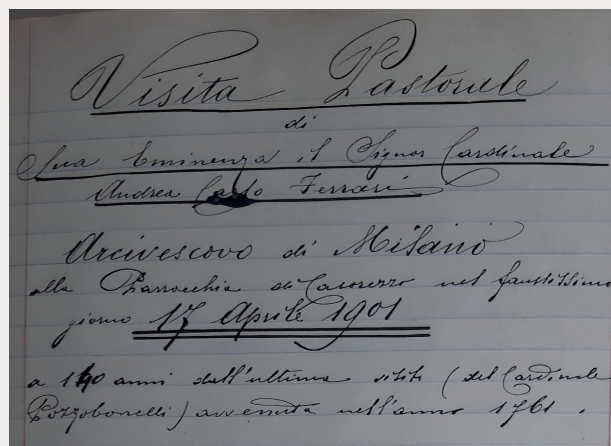 Visita Pastorale
di
Sua Eminenza il Signor Cardinale
Andrea Carlo Ferrari
Arcivescovo di Milano
alla Parrocchia di Casorezzo nel faustissimo
giorno 17 Aprile 1901
a 140 anni dall'ultima visita (del Cardinale
Pozzobonelli) avvenuta nell'anno 1761.